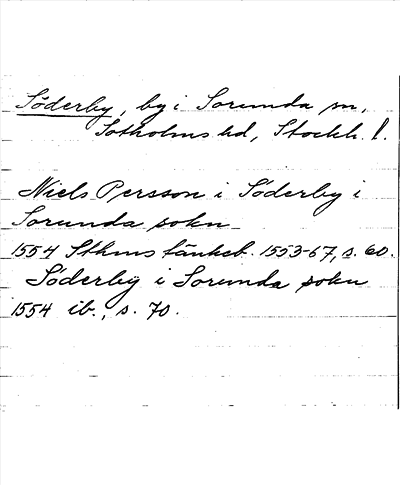 Söderby, by i Sorunda sn,
Sotholms hd, Stockh. l.
Niels Persson i Söderby i
Sorunda sokn
1554 Sthms tänkeb. 1553-67, s. 60.
Söderby i Sorunda sokn
1554 ib., s. 70.